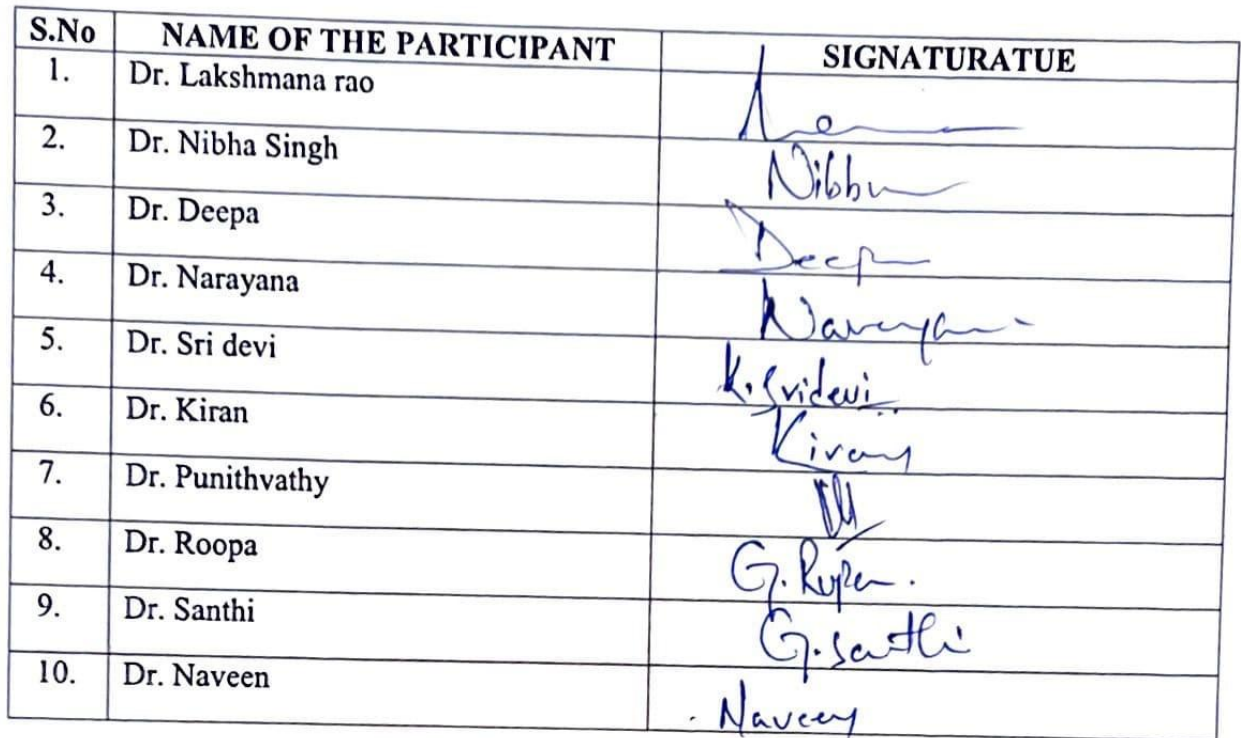 S.No NAME OF THE PARTICIPANT SIGNATURATUE
1. Dr. Lakshmana rao
2. Dr. Nibha Singh
3. Dr. Deepa Deepa
4. Dr. Narayana Narayana
5. Dr. Sri devi K. Sridevi
6. Dr. Kiran Kiran
7. Dr. Punithvathy
8. Dr. Roopa G. Rupa.
9. Dr. Santhi G. Santhi
10. Dr. Naveen Naveen